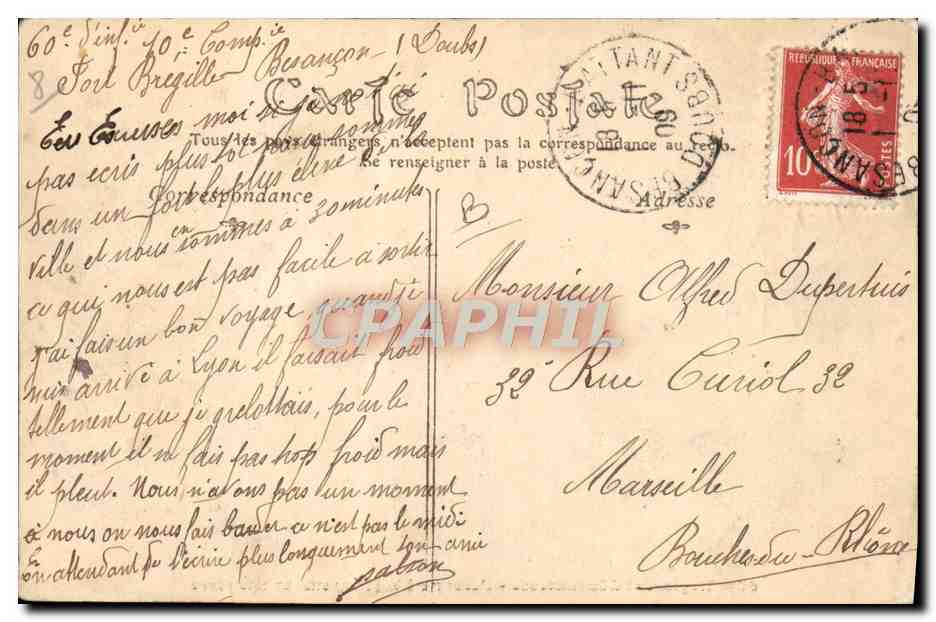 60e d'infie 10e Compie
Fort Bregille Besançon - (Doubs)
8
Carte Postale
Tous les pays étrangers n'acceptent pas la correspondance au recto.
Se renseigner à la poste.
Correspondance
Eu Excuses moi si je ne t'ai
pas ecris plus tot nous sommes
dans un fort le plus élevé de la
ville et nous en sommes à 30 minutes
ce qui nous est pas facile a sortir
j'ai fais un bon voyage quand je
suis arrivé à Lyon il faisait froid
tellement que je grelottais, pour le
moment il ne fais pas trop froid mais
il pleut. Nous n'avons pas un moment
à nous on nous fais barder ce n'est pas le midi
En attendant de t'écrire plus longuement ton ami
Adresse
B
Monsieur Alfred Dupertuis
32 Rue Curiol 32
Marseille
Bouches-du-Rhône
BESANÇON-BATTANT DOUBS
18
09
REPUBLIQUE FRANÇAISE
10
POSTES
BESANÇON-B
18 5
CPAPHIL